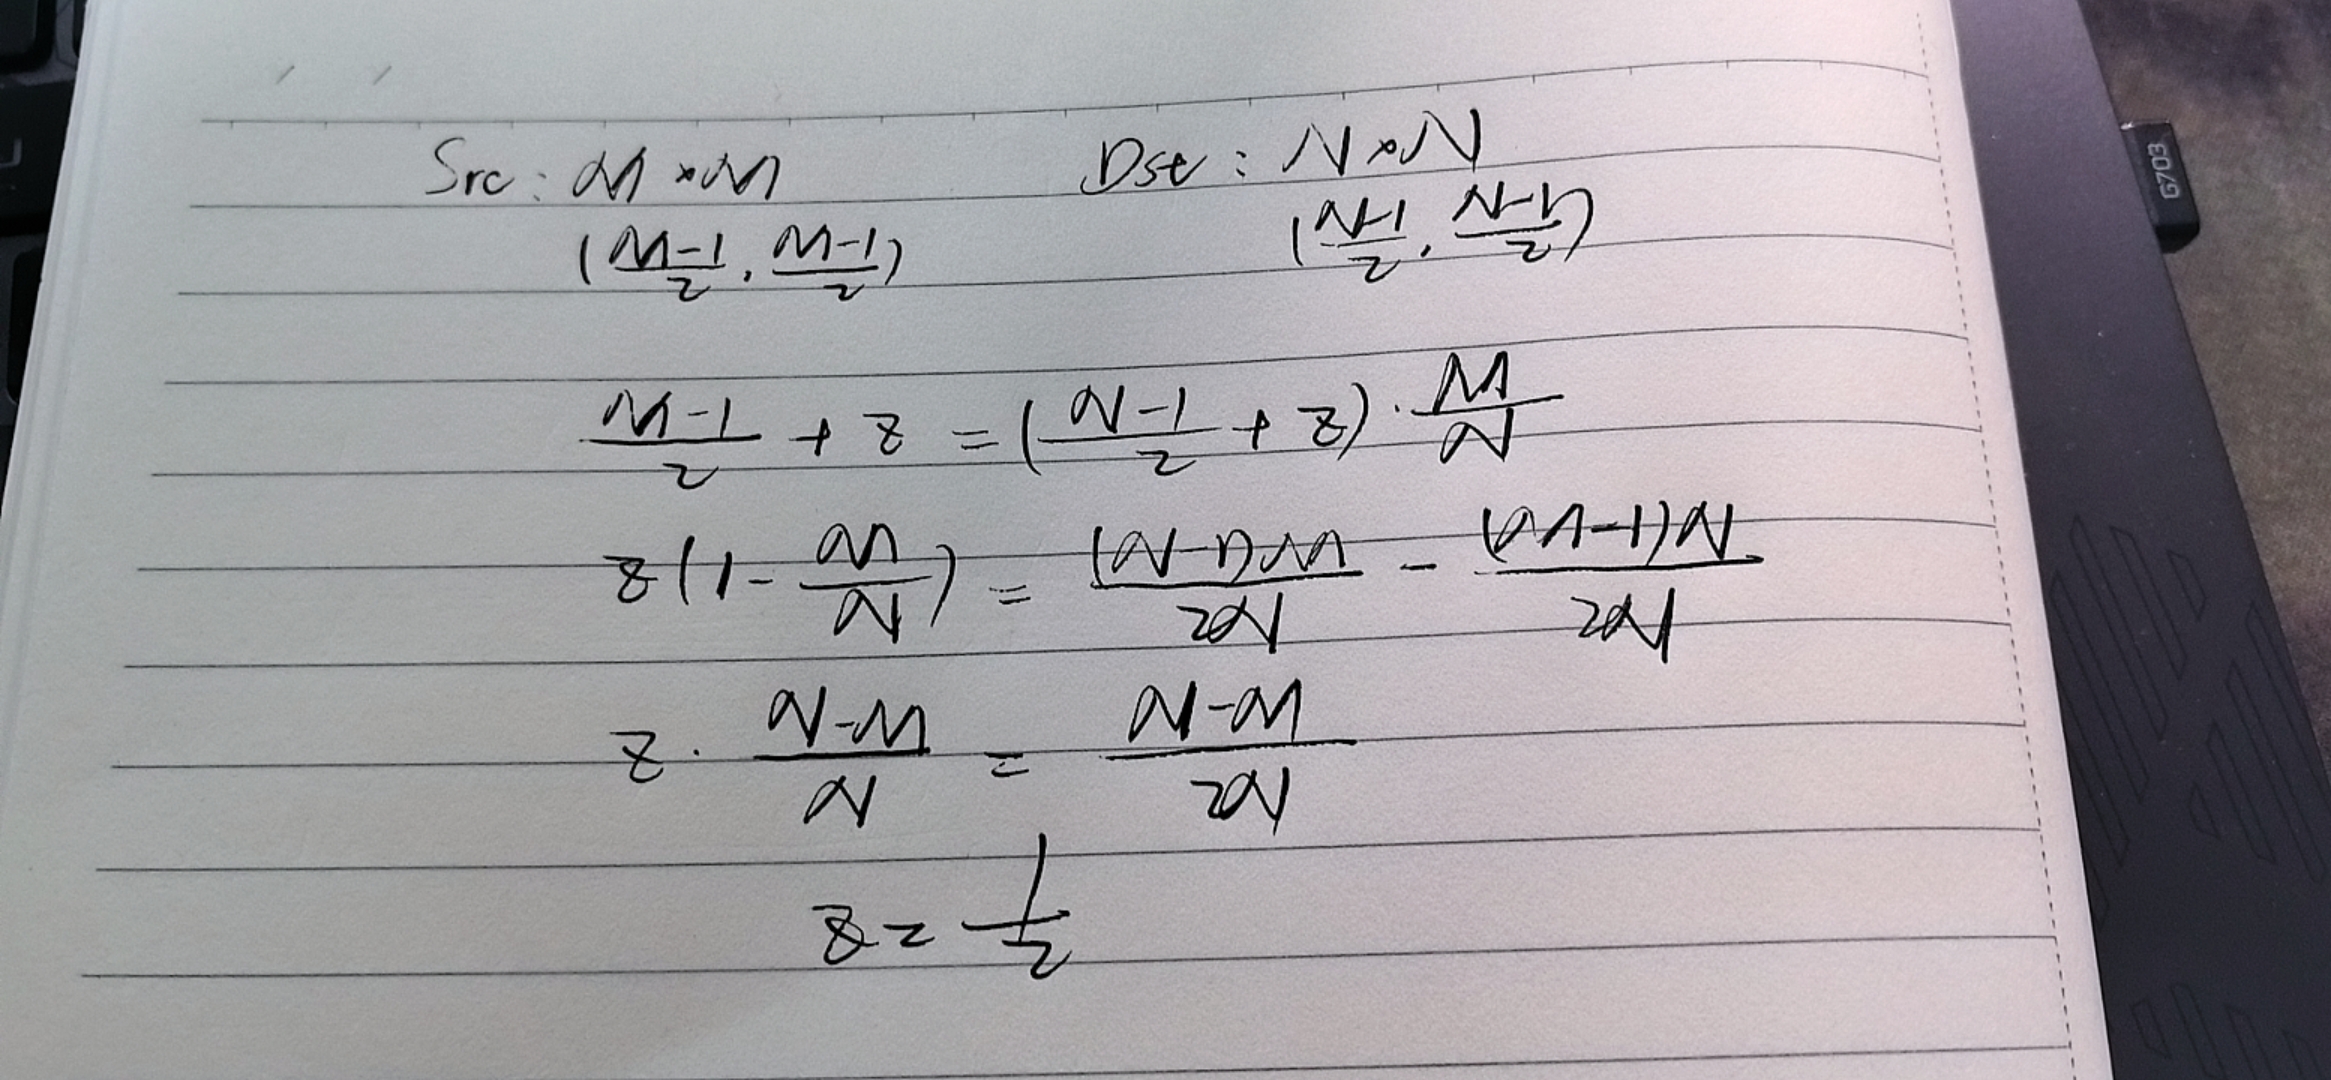 Src: M×M Dst: N×N
(\frac{M-1}{2}, \frac{M-1}{2}) (\frac{N-1}{2}, \frac{N-1}{2})
\frac{M-1}{2} + z = (\frac{N-1}{2} + z) · \frac{M}{N}
z(1 - \frac{M}{N}) = \frac{(N-1)M}{2N} - \frac{(M-1)N}{2N}
z · \frac{N-M}{N} = \frac{N-M}{2N}
z = \frac{1}{2}
G703